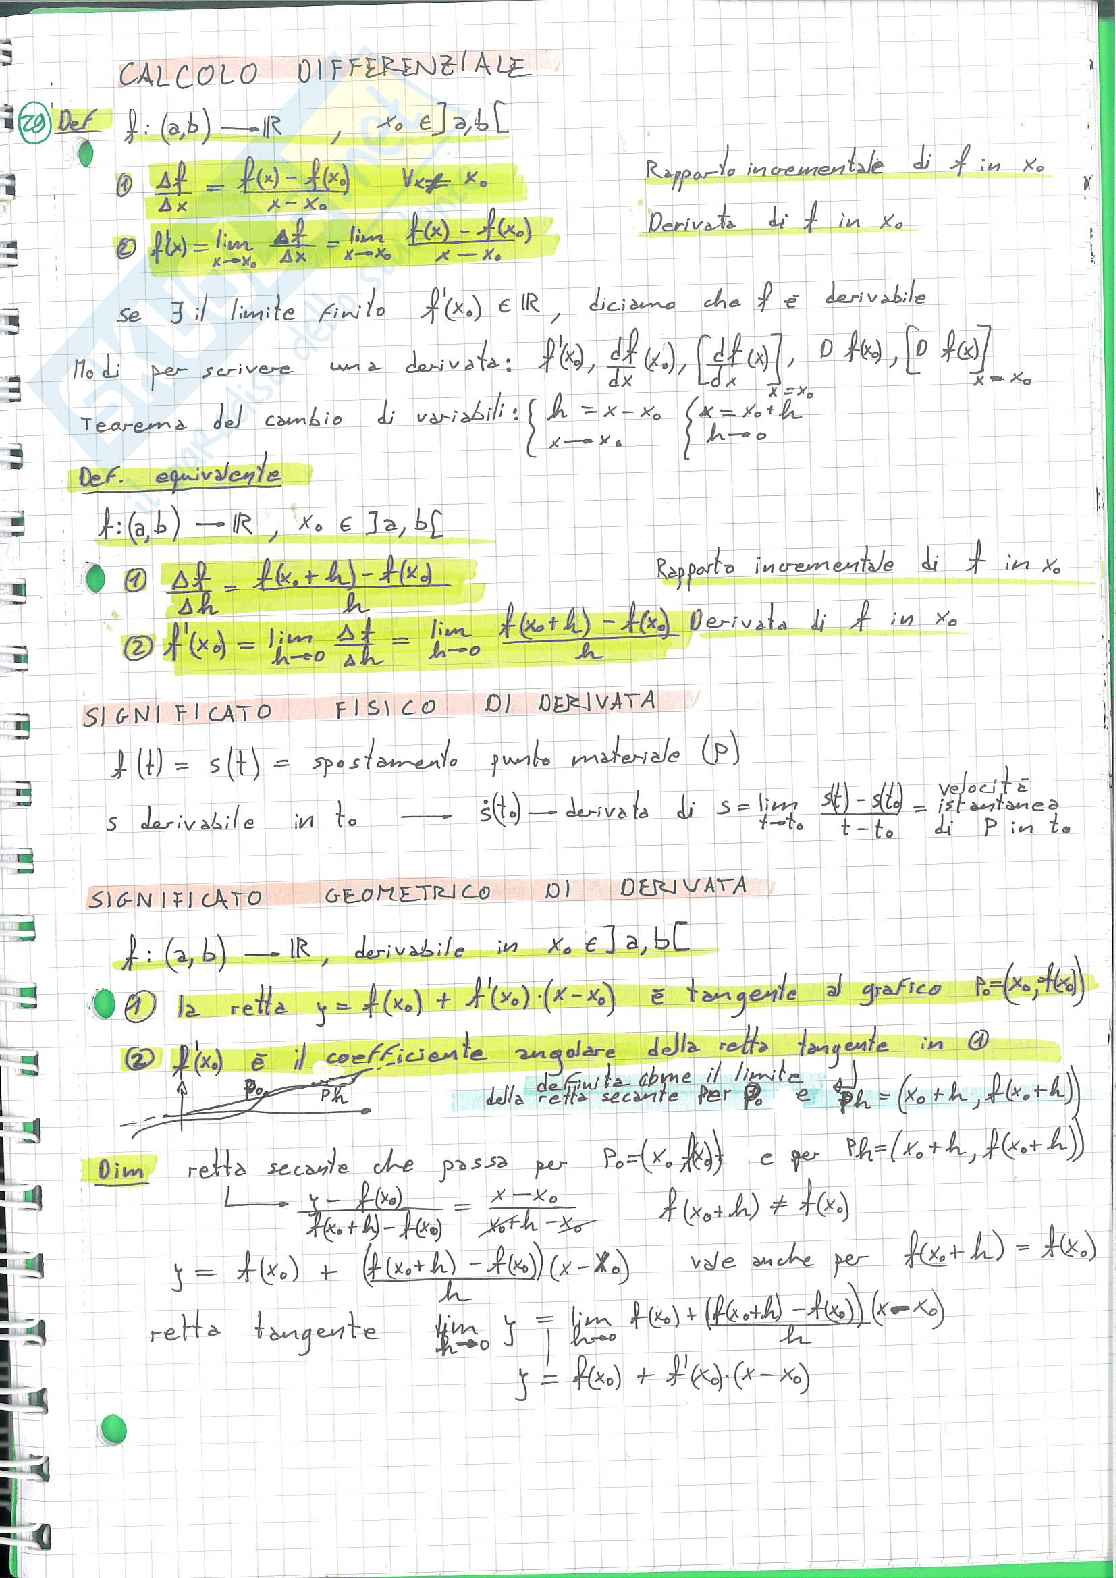 CALCOLO DIFFERENZIALE
29 Def f: (a,b) → ℝ , x₀ ∈ ]a,b[
① Δf/Δx = (f(x) - f(x₀))/(x - x₀) ∀x≠ x₀ Rapporto incrementale di f in x₀
② f'(x) = lim x→x₀ Δf/Δx = lim x→x₀ (f(x) - f(x₀))/(x - x₀) Derivata di f in x₀
se ∃ il limite finito f'(x₀) ∈ ℝ, diciamo che f è derivabile
Modi per scrivere una derivata: f'(x₀), df/dx (x₀), [df/dx (x)] x=x₀, D f(x₀), [D f(x)] x=x₀
Teorema del cambio di variabili: { h = x - x₀ x → x₀ { x = x₀ + h h → 0
Def. equivalente
f: (a,b) → ℝ , x₀ ∈ ]a,b[
① Δf/Δh = (f(x₀ + h) - f(x₀))/h Rapporto incrementale di f in x₀
② f'(x₀) = lim h→0 Δf/Δh = lim h→0 (f(x₀+h) - f(x₀))/h Derivata di f in x₀
SIGNIFICATO FISICO DI DERIVATA
f(t) = s(t) = spostamento punto materiale (P)
s derivabile in t₀ → ṡ(t₀) — derivata di s = lim t→t₀ (s(t) - s(t₀))/(t - t₀) = velocità istantanea di P in t₀
SIGNIFICATO GEOMETRICO DI DERIVATA
f: (a,b) → ℝ, derivabile in x₀ ∈ ]a,b[
① la retta y = f(x₀) + f'(x₀)·(x-x₀) è tangente al grafico P₀=(x₀,f(x₀))
② f'(x₀) è il coefficiente angolare della retta tangente in ①
definita come il limite
della retta secante per P₀ e Ph = (x₀+h, f(x₀+h))
P₀ Ph
Dim retta secante che passa per P₀=(x₀ f(x₀)) e per Ph=(x₀+h, f(x₀+h))
(y - f(x₀))/(f(x₀+h) - f(x₀)) = (x - x₀)/(x₀+h - x₀) f(x₀+h) ≠ f(x₀)
y = f(x₀) + (f(x₀+h) - f(x₀))/h (x - x₀) vale anche per f(x₀+h) = f(x₀)
retta tangente lim h→0 y = lim h→0 f(x₀) + (f(x₀+h) - f(x₀))/h (x - x₀)
y = f(x₀) + f'(x₀)·(x - x₀)